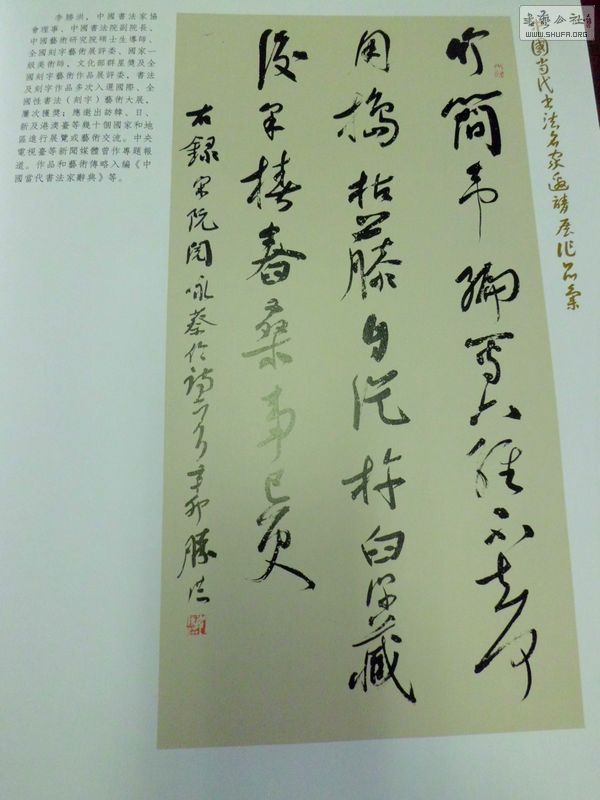 李勝洪，中國書法家協
會理事、中國書法院副院長、
中國藝術研究院碩士生導師、
全國刻字藝術展評委、國家一
級美術師、文化部群星獎及全
國刻字藝術作品展評委。書法
及刻字作品多次入選國際、全
國性書法（刻字）藝術大展，
屢次獲獎；應邀出訪韓、日、
新及港澳臺等幾十個國家和地
區進行展覽或藝術交流。中央
電視臺等新聞媒體曾作專題報
道。作品和藝術傳略入編《中
國當代書法家辭典》等。
國当代书法名家邀請展作品集
竹簡韦编写六经不知何
用搗枯藤自從杵臼深藏
後采舂桑事已更
右録宋阮阅咏蔡伦詩一首辛卯勝洪
書法公社
WWW.SHUFA.ORG